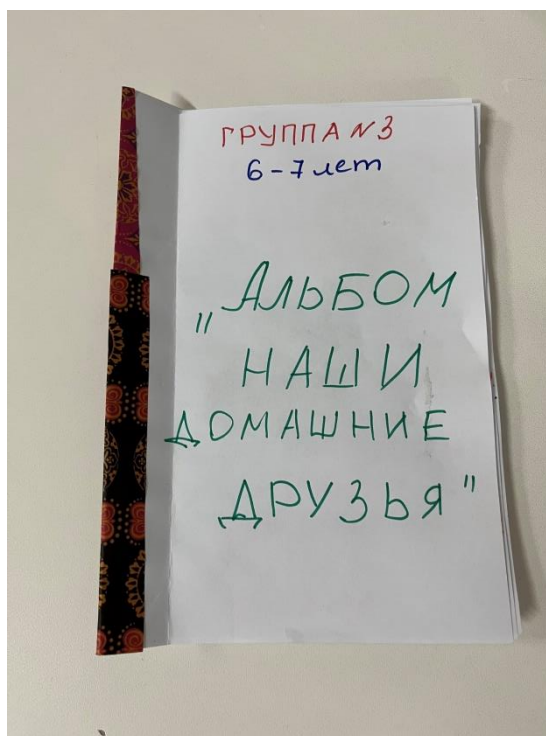 ГРУППА N3
6-7 лет
„АЛЬБОМ
НАШИ
ДОМАШНИЕ
ДРУЗЬЯ"